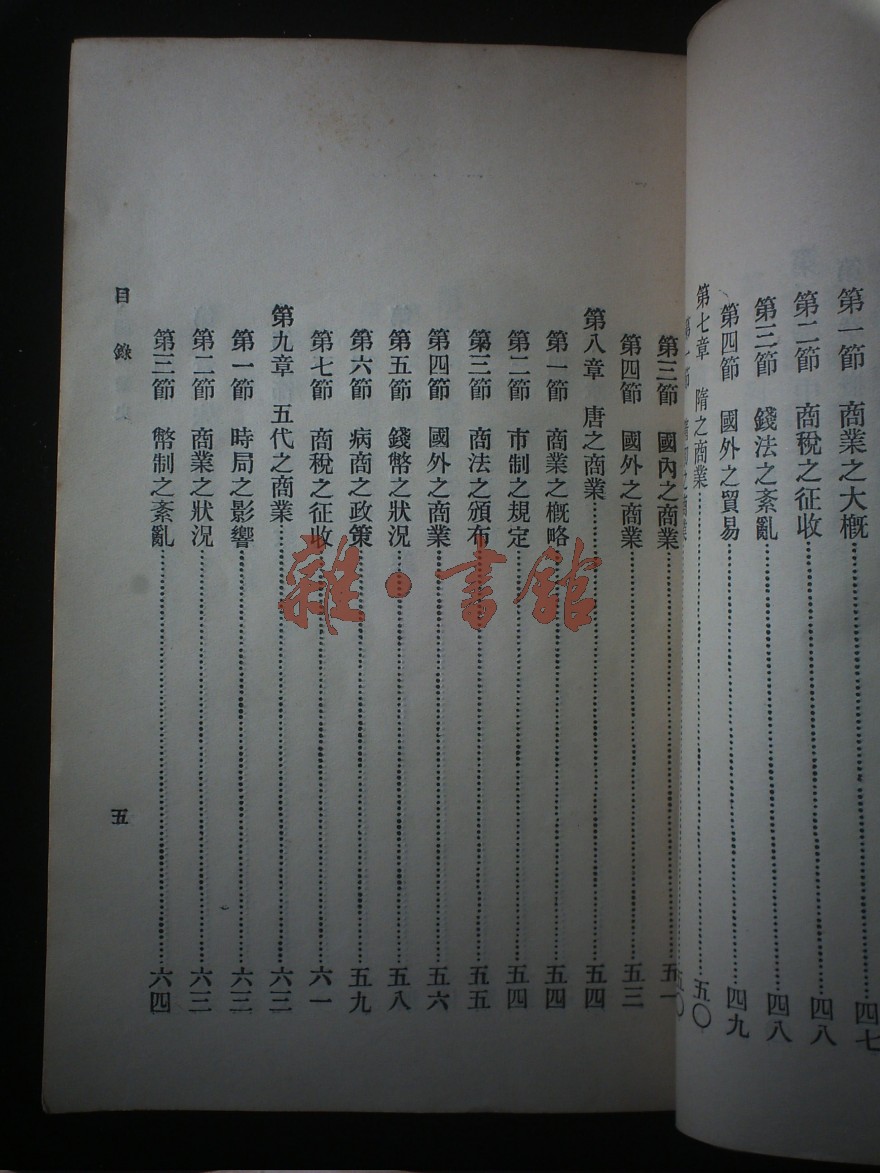 第一節 商業之大概……四七
第二節 商稅之征收……四八
第三節 錢法之紊亂……四八
第四節 國外之貿易……四九
第七章 隋之商業……五〇
第三節 國內之商業……五一
第四節 國外之商業……五三
第八章 唐之商業……五四
第一節 商業之概略……五四
第二節 市制之規定……五四
第三節 商法之頒布……五五
第四節 國外之商業……五六
第五節 錢幣之狀况……五八
第六節 病商之政策……五九
第七節 商稅之征收……六一
第九章 五代之商業……六三
第一節 時局之影響……六三
第二節 商業之狀况……六三
第三節 幣制之紊亂……六四
目錄
五
雜·書館